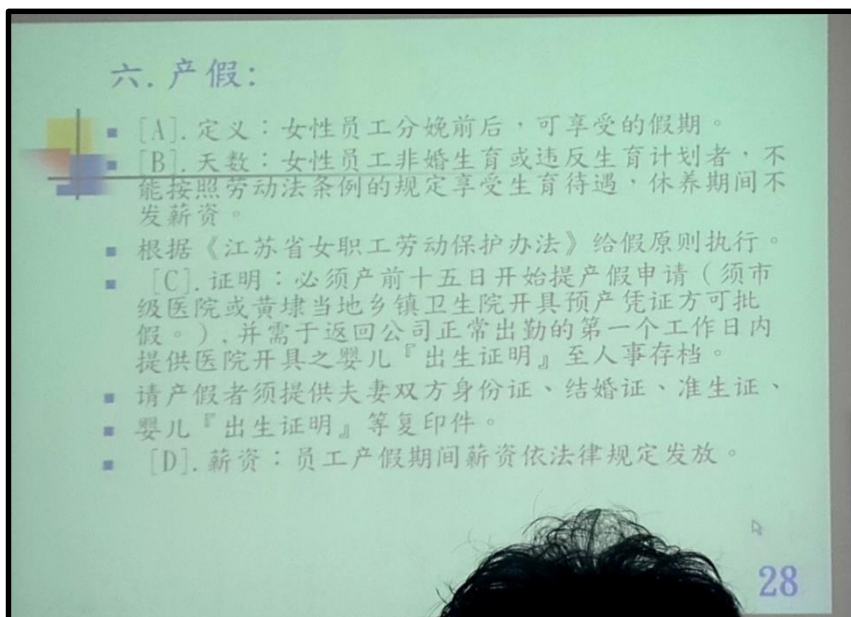 六.产假：
[A].定义：女性员工分娩前后，可享受的假期。
[B].天数：女性员工非婚生育或违反生育计划者，不
能按照劳动法条例的规定享受生育待遇，休养期间不
发薪资。
根据《江苏省女职工劳动保护办法》给假原则执行。
[C].证明：必须产前十五日开始提产假申请（须市
级医院或黄埭当地乡镇卫生院开具预产凭证方可批
假。）.并需于返回公司正常出勤的第一个工作日内
提供医院开具之婴儿『出生证明』至人事存档。
请产假者须提供夫妻双方身份证、结婚证、准生证、
婴儿『出生证明』等复印件。
[D].薪资：员工产假期间薪资依法律规定发放。
28